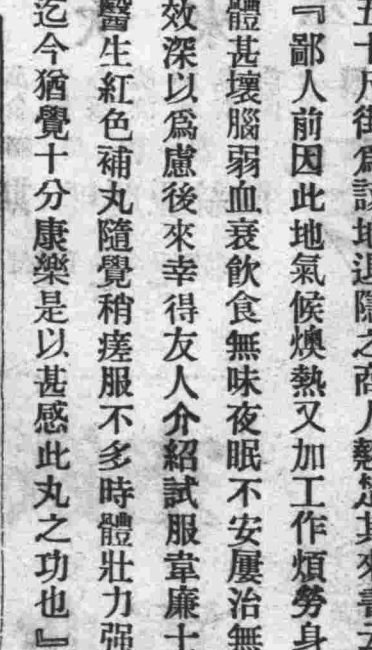 五十尺街爲該地退隱之商人熱楚其來書云
『鄙人前因此地氣候燠熱又加工作煩勞身
體甚壞腦弱血衰飲食無味夜眠不安屢治無
效深以爲慮後來幸得友人介紹試服韋廉士
醫生紅色補丸隨覺稍瘥服不多時體壯力强
迄今猶覺十分康樂是以甚感此丸之功也』